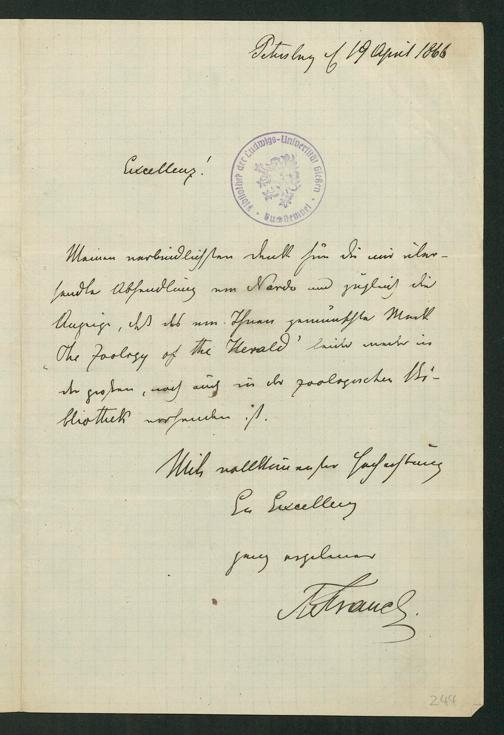 Petersburg d 19 April 1866
Bibliothek der Ludwigs-Universität Gießen
Excellenz!
Meinen verbindlichsten Dank für die mir über-
sandte Abhandlung von Nardo und zugleich die
Anzeige, daß das von Ihnen gewünschte Werk
"The Zoology of the Herald" leider weder in
der großen, noch auch in der zoologischen Bi-
bliothek vorhanden ist.
Mit vollkommenster Hochachtung
Ew Excellenz
ganz ergebener
Strauch.
244